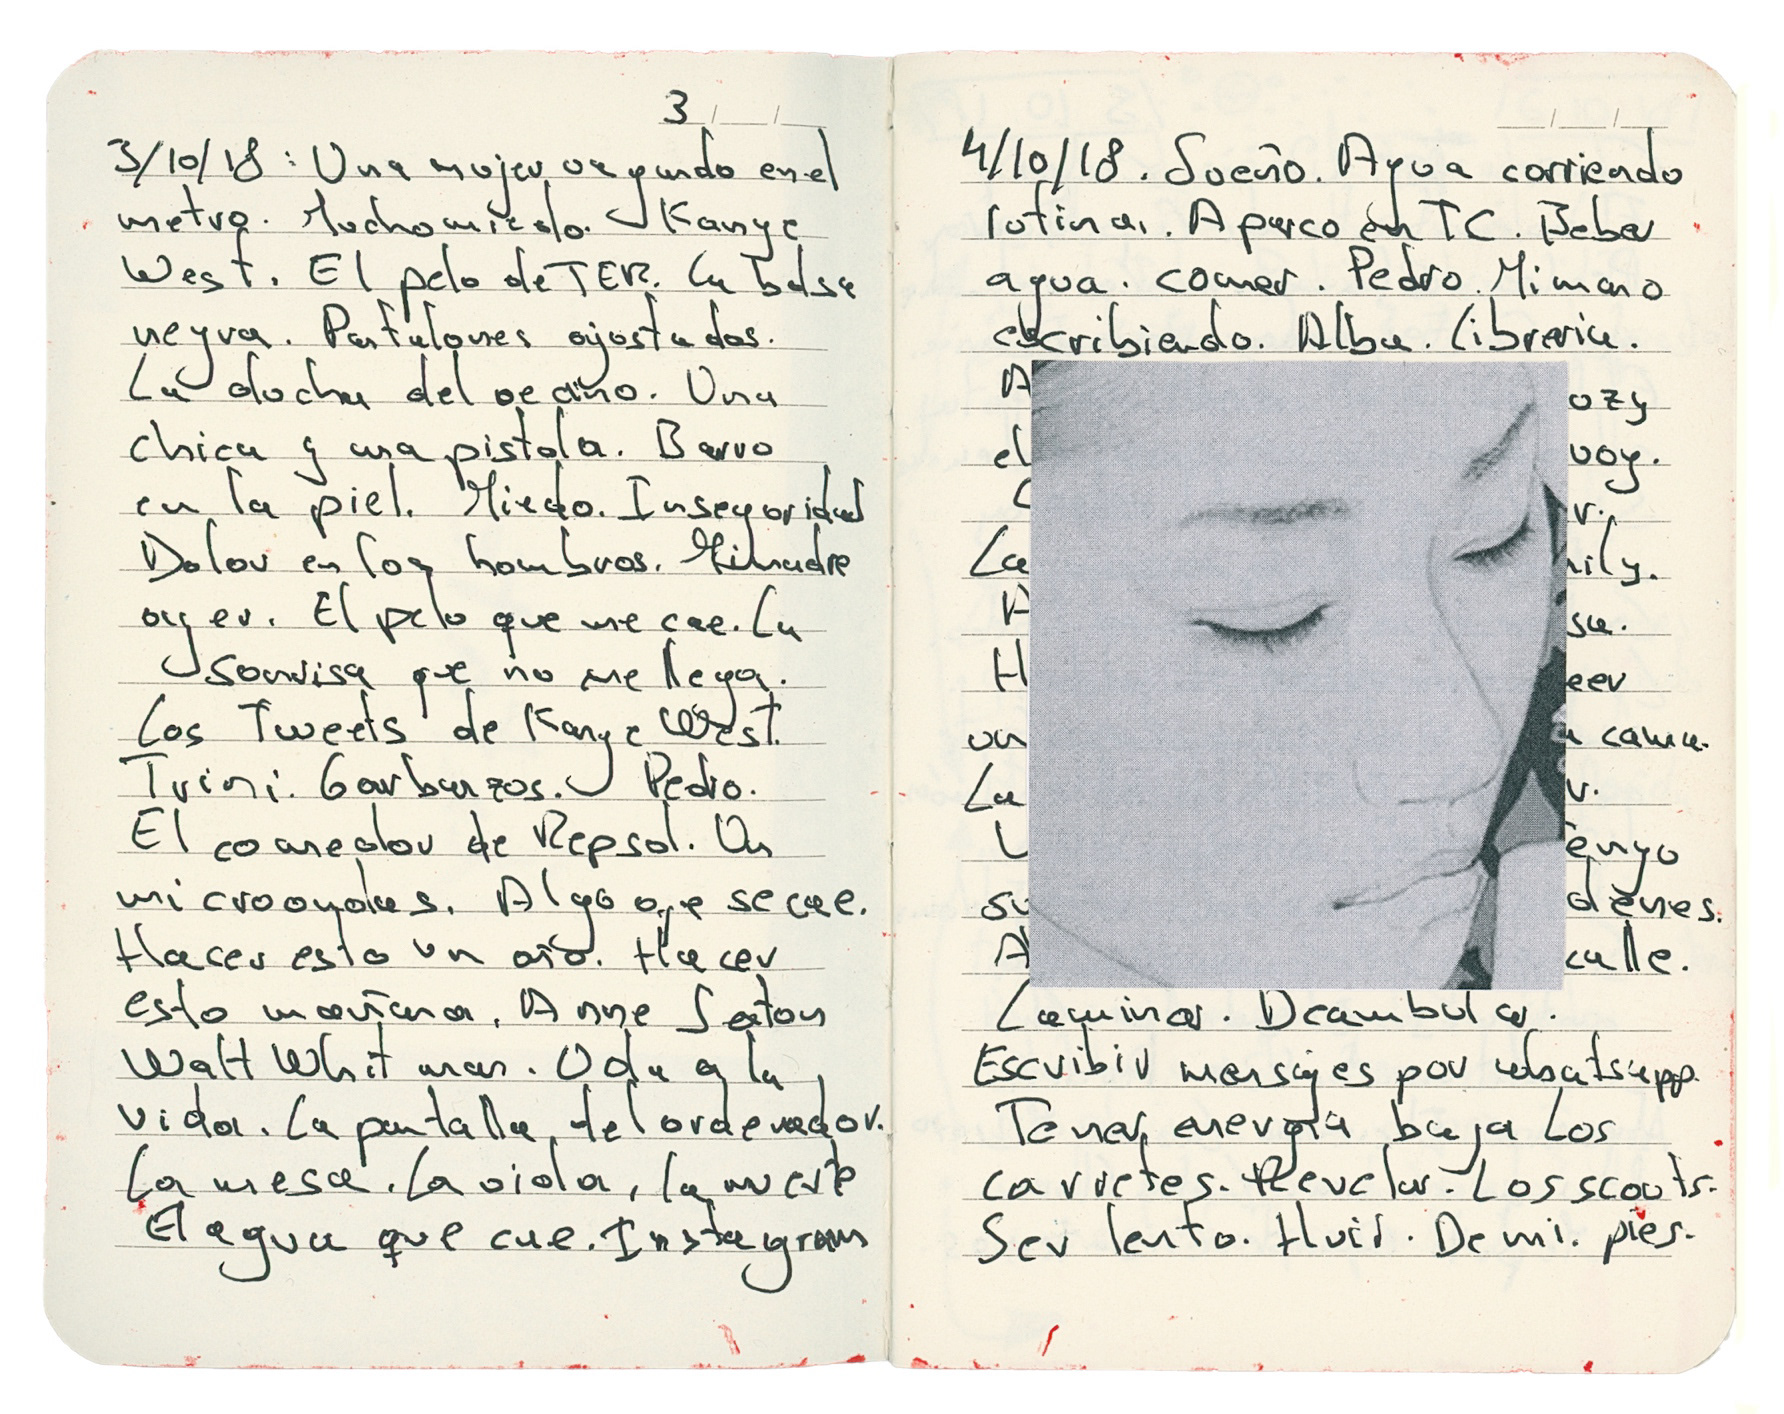 3
3/10/18: Una mujer vagando en el
metro. Mucho miedo. Kanye
West. El pelo de TER. La bolsa
negra. Pantalones ajustados.
La ducha del vecino. Una
chica y una pistola. Barro
en la piel. Miedo. Inseguridad
Dolor en los hombros. Mi madre
ayer. El pelo que me cae. La
sonrisa que no me llega.
Los Tweets de Kanye West.
Trini. Garbanzos. Pedro.
El comedor de Repsol. Un
microondas. Algo que se cae.
Hacer esto un año. Hacer
esto mañana. Anne Sexton
Walt Whitman. Oda a la
vida. La pantalla del ordenador.
La mesa. La vida, la muerte
El agua que cae. Instagram
4/10/18. Sueño. Agua corriendo
rutina. Aparco en TC. Beber
agua. comer. Pedro. Mi mano
escribiendo. Alba. Librería.
A ozy
el voy.
C r.
La ily.
A sa.
H eer
un a cama.
La r.
U engo
su denes.
A calle.
Caminar. Deambular.
Escribir mensajes por whatsapp.
Tener energía baja Los
carretes. Revelar. Los scouts.
Ser lento. Huir. De mi. pies.